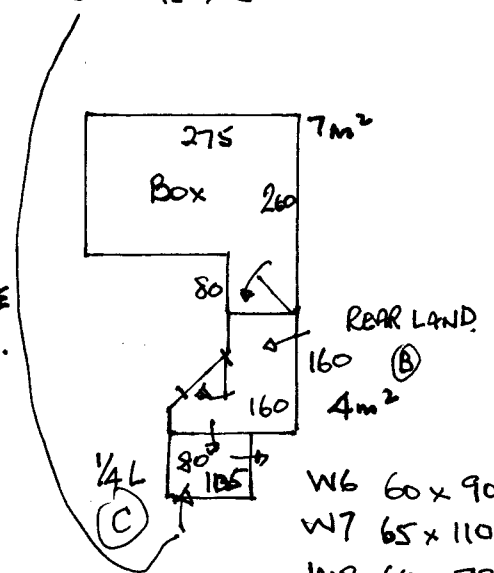 275
7m²
Box
260
80
REAR LAND.
160
B
160
4m²
80
1/4 L
C
W6 60 x 90
W7 65 x 110